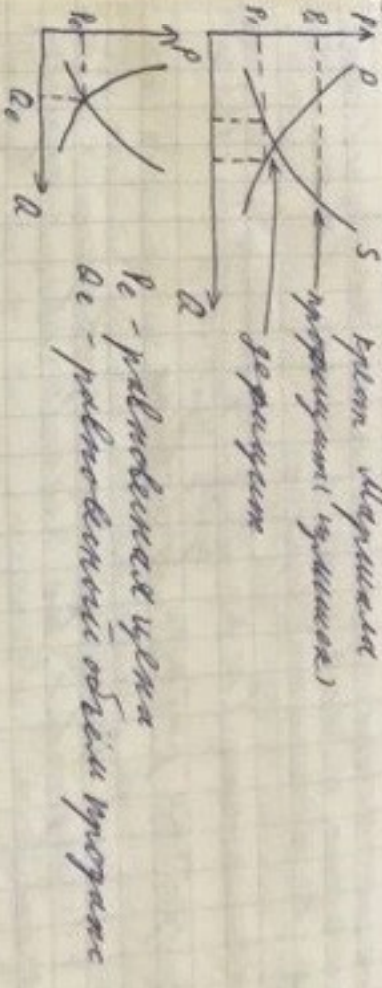 P
P₂
P₁
D
S
Q
крест Маршалла
профицит (излишек)
дефицит
P
Pe
Qe
Q
Pe - равновесная цена
Qe - равновесный объём продаж